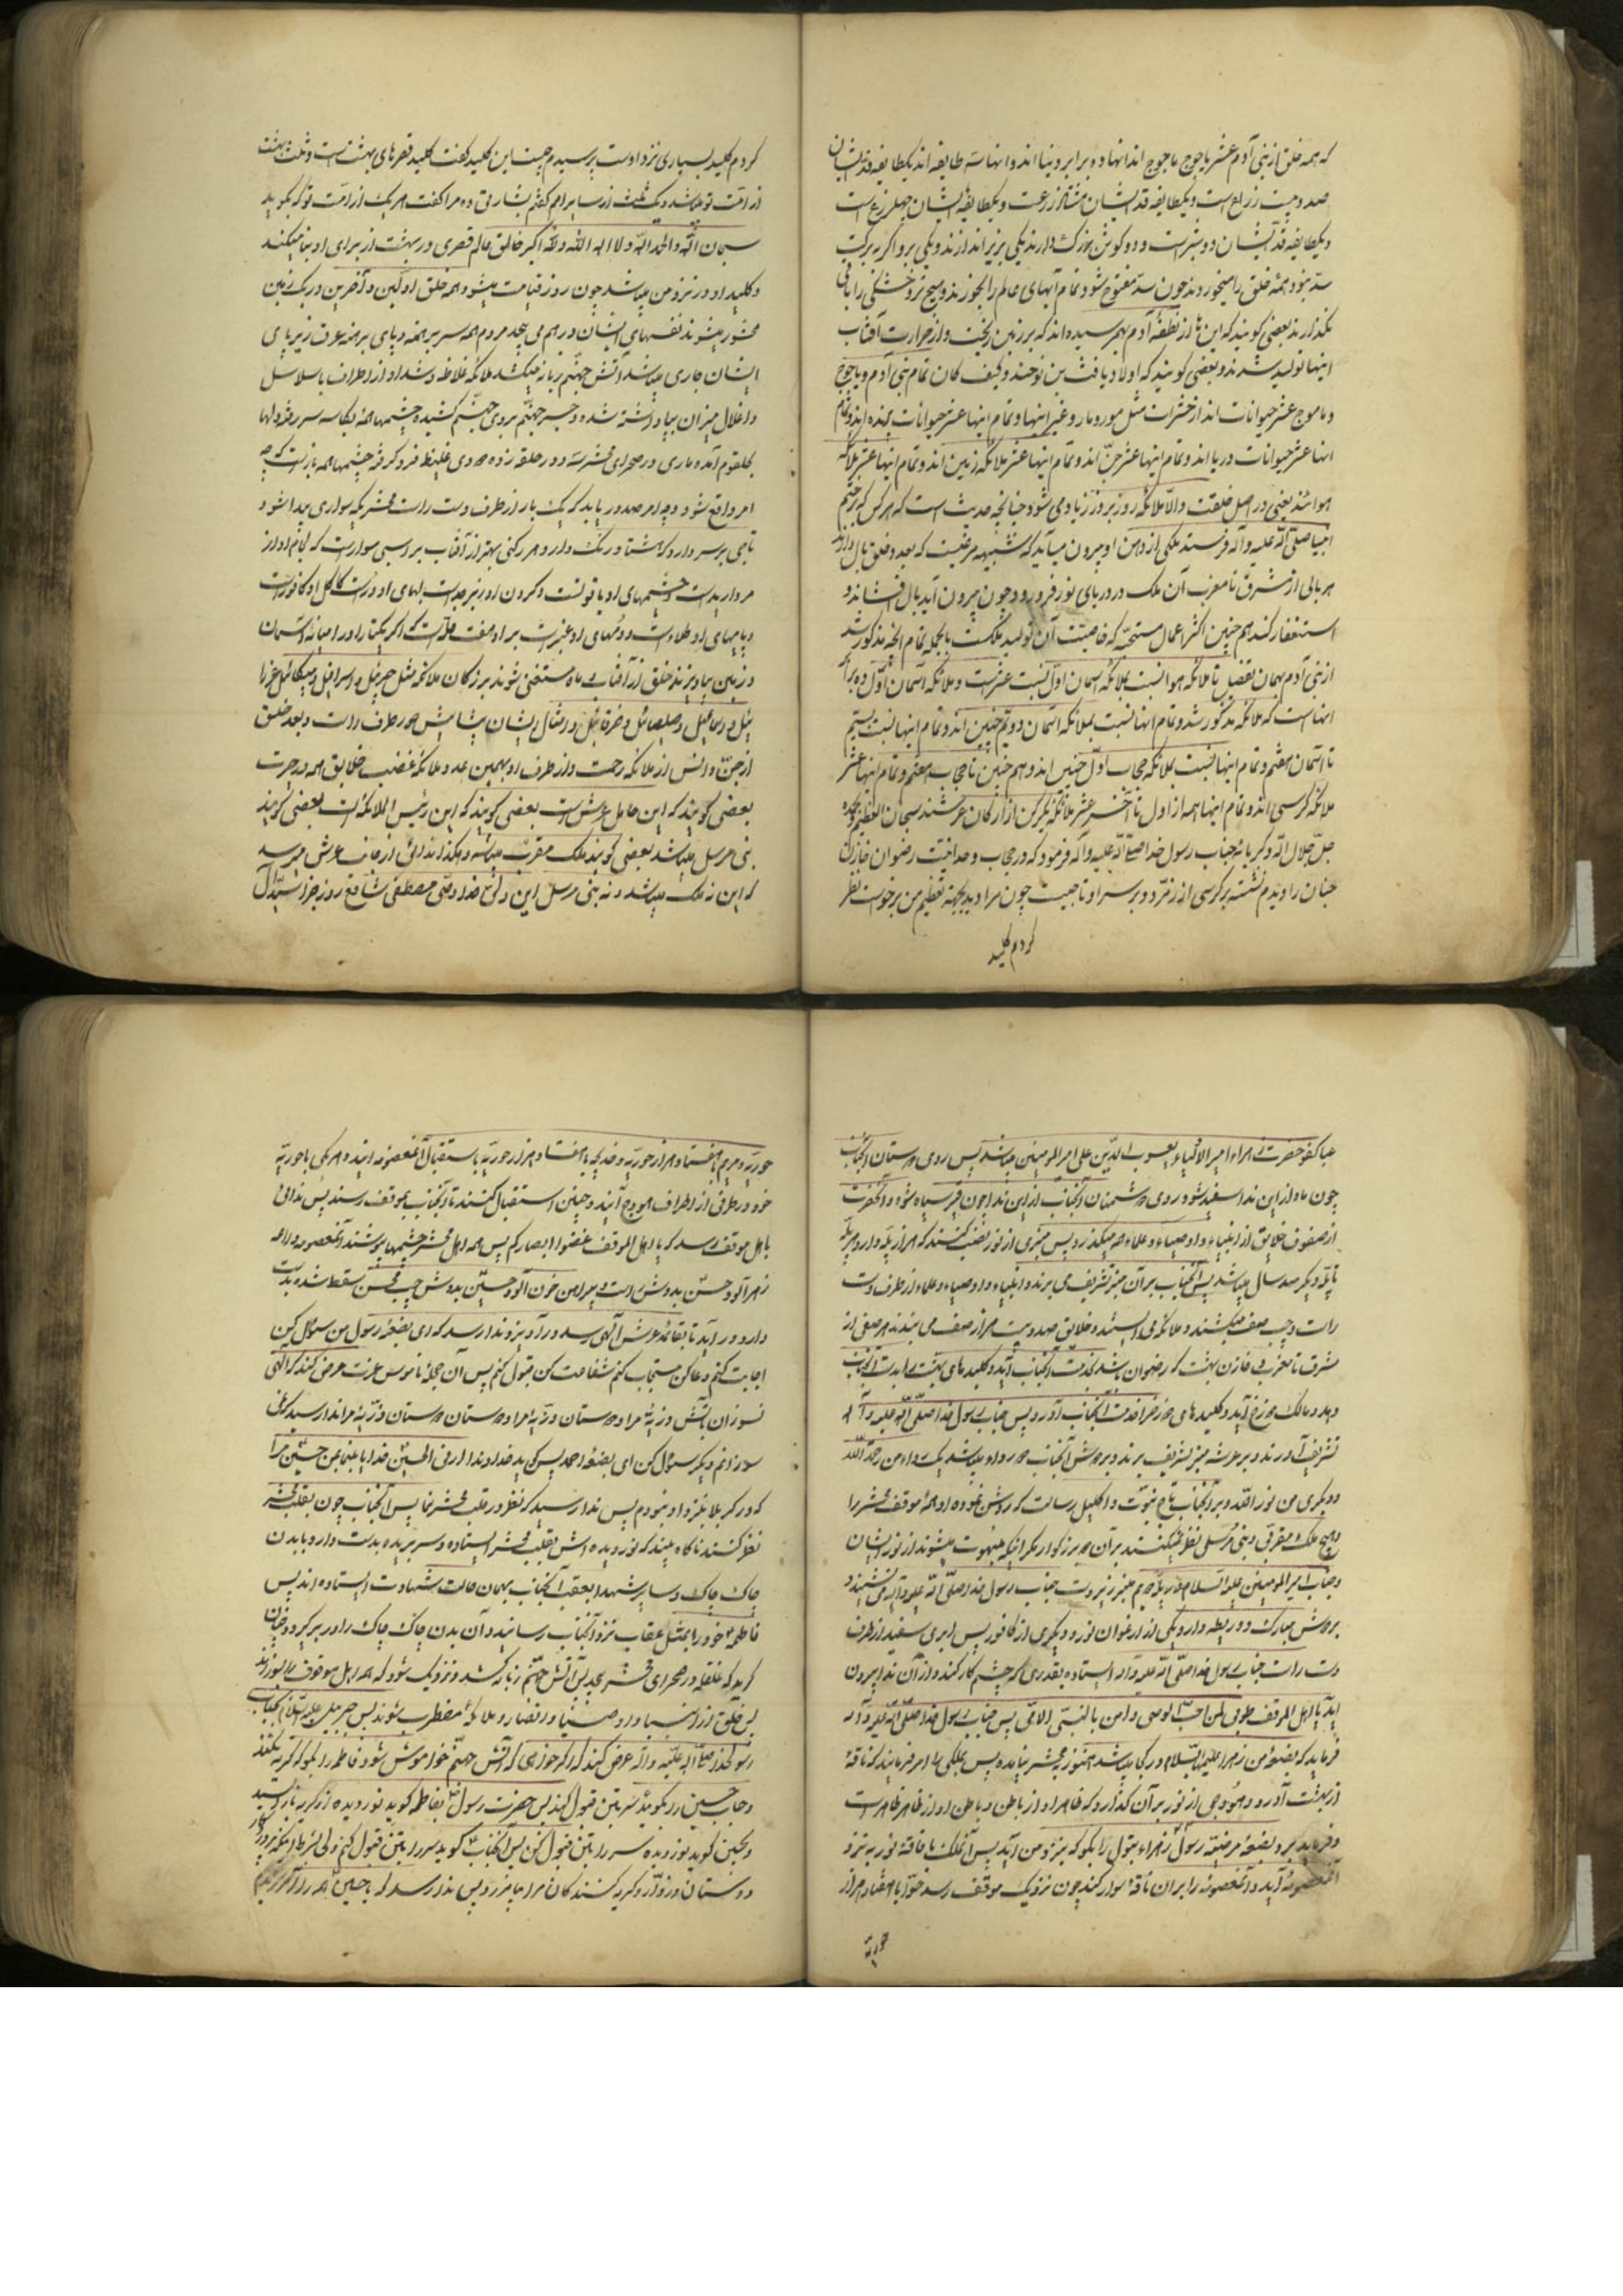 که همه خلق از بنی آدم عشر یاجوج ماجوج اند انها ده برابر دنیا اند و انها سه طایفه اند یکطایفه قد ایشان
صد و بیست زراع است و یکطایفه قد ایشان هشتاد زرعست و یکطایفه ایشان چهل زرع است
و یکطایفه قد ایشان دو شبر است و دو کوش بزرک دارند یکی بزیر اندازند و یکی برو اگر به برکت
سد نبود همه خلق را میخوردند چون سد مفتوح شود تمام آبهای عالم را بخورند و هیچ تر و خشکی را باقی
نکذارند بعضی کویند که این ها از نطفه آدم بهم رسیده اند که بر زمین ریخت و از حرارت آفتاب
اینها تولید شدند و بعضی کویند که اولاد یافث بن نوحند و کیف کان تمام بنی آدم و یاجوج
و ماجوج عشر حیوانات اند از حشرات مثل مور و مار و غیر اینها و تمام اینها عشر حیوانات پرنده اند و تمام
انها عشر حیوانات دریا اند و تمام اینها عشر جن اند و تمام اینها عشر ملائکه زمین اند و تمام اینها عشر ملائکه
هوا اند یعنی در اصل خلقت والا ملائکه روز بروز زیاد می شود چنانچه حدیث است که هر کس که بر ختم
انبیا صلی الله علیه و آله فرستد ملکی از دهن او بیرون میآید که شبیه مرغیست که بعدد خلق بال دارد
هر بالی از مشرق تا مغرب آن ملک در دریای نور فرو رود و چون بیرون آید بال افشاند و
استغفار کند هم چنین اکثر اعمال مستحبه که خاصیت آن تولید ملکست بالجمله تمام انچه مذکور شد
از بنی آدم بهمان تفصیل تا ملائکه هوا نسبت بملائکه آسمان اول نسبت عشر است و ملائکه آسمان اول ده برابر
انها است که ملائکه مذکور شد و تمام انها نسبت بملائکه آسمان دویم چنین اند و تمام اینها نسبت بسیم
تا آسمان هفتم و تمام اینها نسبت بملائکه حجاب اول چنین اند و هم چنین تا حجاب هفتم و تمام اینها عشر
ملائکه کرسی اند و تمام اینها همه از اول تا آخر عشر ملائکه یکرکن از ارکان عرشند سبحان العظیم و بحمده
جل جلال الله و کبریائه جناب رسول خدا صلی الله علیه و آله فرمود که در حجاب وحدانیت رضوان خازن
جنان را دیدم نشسته بر کرسی از زمرد و بر سر او تاجیست چون مرا دید بجهة تعظیم من برخواست نظر
کردم کلید
کردم کلید بسیاری نزد اوست پرسیدم چیست این کلید کفت کلید قصرهای بهشت است و ثلث بهشت
از امت تو میباشد و یک ثلث از سایر امم کفتم بشارتی ده مرا کفت هر یک از امت تو که بگوید
سبحان الله والحمد لله ولا اله الا الله والله اکبر خالق عالم قصری در بهشت از برای او بنا میکند
و کلید او در نزد من میباشد چون روز قیامت میشود همه خلق اولین و آخرین در یک زمین
محشور میشوند نفسهای ایشان در هم می پیچد مردم همه سر برهنه و پای برهنه عرق زیر پای
ایشان جاری میباشد آتش جهنم زبانه میکشد ملائکه غلاظ و شداد از اطراف با سلاسل
و اغلال میزان بپا داشته شده و جسر جهنم بروی جهنم کشیده چشمها همه بکاسه سر رفته و دلها
بحلقوم آمده ماری در صحرای محشر سه دور حلقه زده دودی غلیظ فرو کرفته چشمها همه باز است که چه
امر واقع شود و چه امر صدور یابد که یک بار از طرف دست راست محشر یکسواری پیدا شود
تاجی بر سر دارد که هشتاد رکن دارد هر رکنی بهتر از آفتاب بر اسبی سوار است که لجام او از
مروارید است و چشمهای او یاقوتست و کردن او زبرجد است لبهای او در است کاکل او کافور است
و پاهای او طلاء است و دمهای او عنبر است بر او هفت حله است که اگر یکتار او در میانه آسمان
و زمین بیاویزند خلق از آفتاب و ماه مستغنی شوند بزرکان ملائکه مثل جبرئیل و اسرافیل و میکائیل و عزرا
ئیل و اسماعیل و صلصائیل و خرقائیل و امثال ایشان پیشاپیش هر طرف راست و بعدد خلق
از جن و انس از ملائکه رحمت و از طرف او بهمین عدد ملائکه غضب خلایق همه در حیرت
بعضی کویند که این حامل عرش است بعضی کویند که این رئیس الملائکه است بعضی کویند
نبی مرسل میباشد بعضی کویند ملک مقرب میباشد و هکذا ندائی از جانب عرش میرسد
که این نه ملک میباشد و نه نبی مرسل این ولی خدا و وصی مصطفی شافع روز جزا سید آل
عبا کفو حضرت زهراء امیر الاتقیاء یعسوب الدین علی امیر المومنین میباشد پس روی دوستان آنجناب
چون ماه از این ندا سفید شود و روی دشمنان آنجناب از این ندا چون قیر سیاه شود و آنحضرت
از صفوف خلایق از انبیاء و اوصیاء و علماء میکذرد پس منبری از نور نصب کنند که هزار پله دارد هر پله
تا پله دیکر صد سال میباشد پس آنجناب بر آن منبر تشریف می برند و انبیاء و اوصیاء و علماء از طرف دست
راست و چپ صف میکشند و ملائکه می ایستند و خلایق صد و بیست هزار صف می بندند هر صفی از
مشرق تا مغرب و خازن بهشت که رضوان باشد بخدمت آنجناب آید و کلیدهای بهشت را بدست آنجناب
دهد و مالک دوزخ آید و کلیدهای دوزخ را بخدمت آنجناب آورد پس جناب رسول خدا صلی الله علیه و آله
تشریف آورند و بر عرشه منبر تشریف برند و بر دوش آنجناب دو رداء میباشد یک رداء من رحمة الله
و دیکری من نور الله و بر سر آنجناب تاج نبوت و اکلیل رسالت که روشن نموده او همه موقف محشر را
و هیچ ملک مقربی و نبی مرسل نظر نمیکنند بر آن دو بزرکوار مکر اینکه مبهوت میشوند از نور ایشان
و جناب امیر المومنین علیه السلام در پله دویم منبر زیر دست جناب رسول خدا صلی الله علیه و آله می نشیند و
بر دوش مبارک دو ربطه دارد یکی از ارغوان نور و دیکری از کافور پس ابری سفید از طرف
دست راست جناب رسول خدا صلی الله علیه و آله ایستاده بقدری که چشم کار کند و از آن ندا بیرون
آید یا اهل الموقف طوبی لمن احب الوصی و امن بالنبی الامی پس جناب رسول خدا صلی الله علیه و آله
فرماید که بضعه من زهرا علیها السلام در کجا میباشد هنوز بمحشر نیامده پس بملکی را امر فرمایند که ناقه
از بهشت آورد و هودجی از نور بر آن کذارد که ظاهر او از باطن و باطن او از ظاهر ظاهر است
و فرماید برو بضعه مرضیه رسول زهراء بتول را بگو که بنزد من آید پس آن ملک با ناقه نور به نزد
آنمعصومه آید و آنمعصومه را بر آن ناقه سوار کند چون نزدیک موقف رسد حوا با هفتاد هزار
حوریه
حوریه و مریم با هفتاد هزار حوریه و خدیجه با هفتاد هزار حوریه باستقبال آنمعصومه ایند و هر یکی با حوریه
خود در طرفی از اطراف هودج آیند و چنین استقبال کنند تا آنجناب بموقف رسند پس ندائی
باهل موقف رسد که یا اهل الموقف غضوا ابصارکم پس همه اهل محشر چشمها بپوشند آنمعصومه
زهر آلود حسن بدوش راست و پیراهن خون آلود حسین بدوش چپ و محسن سقط شده بدست
دارد و در آید تا بقائمه عرش آلهی رسد و در آویزد و ندا رسد که ای بضعه رسول من سئوال کن
اجابت کنم دعا کن مستجاب کنم شفاعت کن قبول کنم پس آن حجله ناموس عزت عرض کند که الهی
نسوزان باتش ذریه مرا و دوستان ذریه مرا و دوستان دوستان ذریه مرا ندا رسد که نمی
سوزانم دیکر سئوال کن ای بضعه احمد پس کوید خداوندا ارنی الحسین خدایا بنما بمن حسین مرا
که در کربلا بنزد او نبودم پس ندا رسد که نظر در قلب محشر نما پس آنجناب چون بقلب محشر
نظر کنند ناکاه بیند که نور دیده اش بقلب محشر ایستاده و سر بریده بدست دارد با بدن
چاک چاک و سایر شهدا بعقب آنجناب بهمان حالت شهادت ایستاده اند پس
فاطمه خود را بمثل عقاب نزد آنجناب رسانیده آن بدن چاک چاک را در بر گیرد و چنان
کرید که غلغله در صحرای محشر پیچد پس آتش جهنم زبانه کشد و نزدیک شود که همه اهل موقف را بسوزاند
پس خلق از انبیاء و اوصیاء و انصار و ملائکه مضطرب شوند پس جبرئیل علیه السلام بجناب
رسول خدا صلی الله علیه و آله عرض کند که اکر خواهی که آتش جهنم خواموش شود فاطمه را بکو که گریه نکند
و جناب حسین را بگوئید سر بتن قبول کند پس حضرت رسول بفاطمه گوید نور دیده از گریه باز ایست
و بحسین گوید نور دیده سر را بتن قبول کن پس آنجناب گوید سر را بتن قبول کنم ولی بشرط آنکه
دوستان و زوار و گریه کنندکان مرا بیامرزد پس ندا رسد که یا حسین همه را آمرزیدم